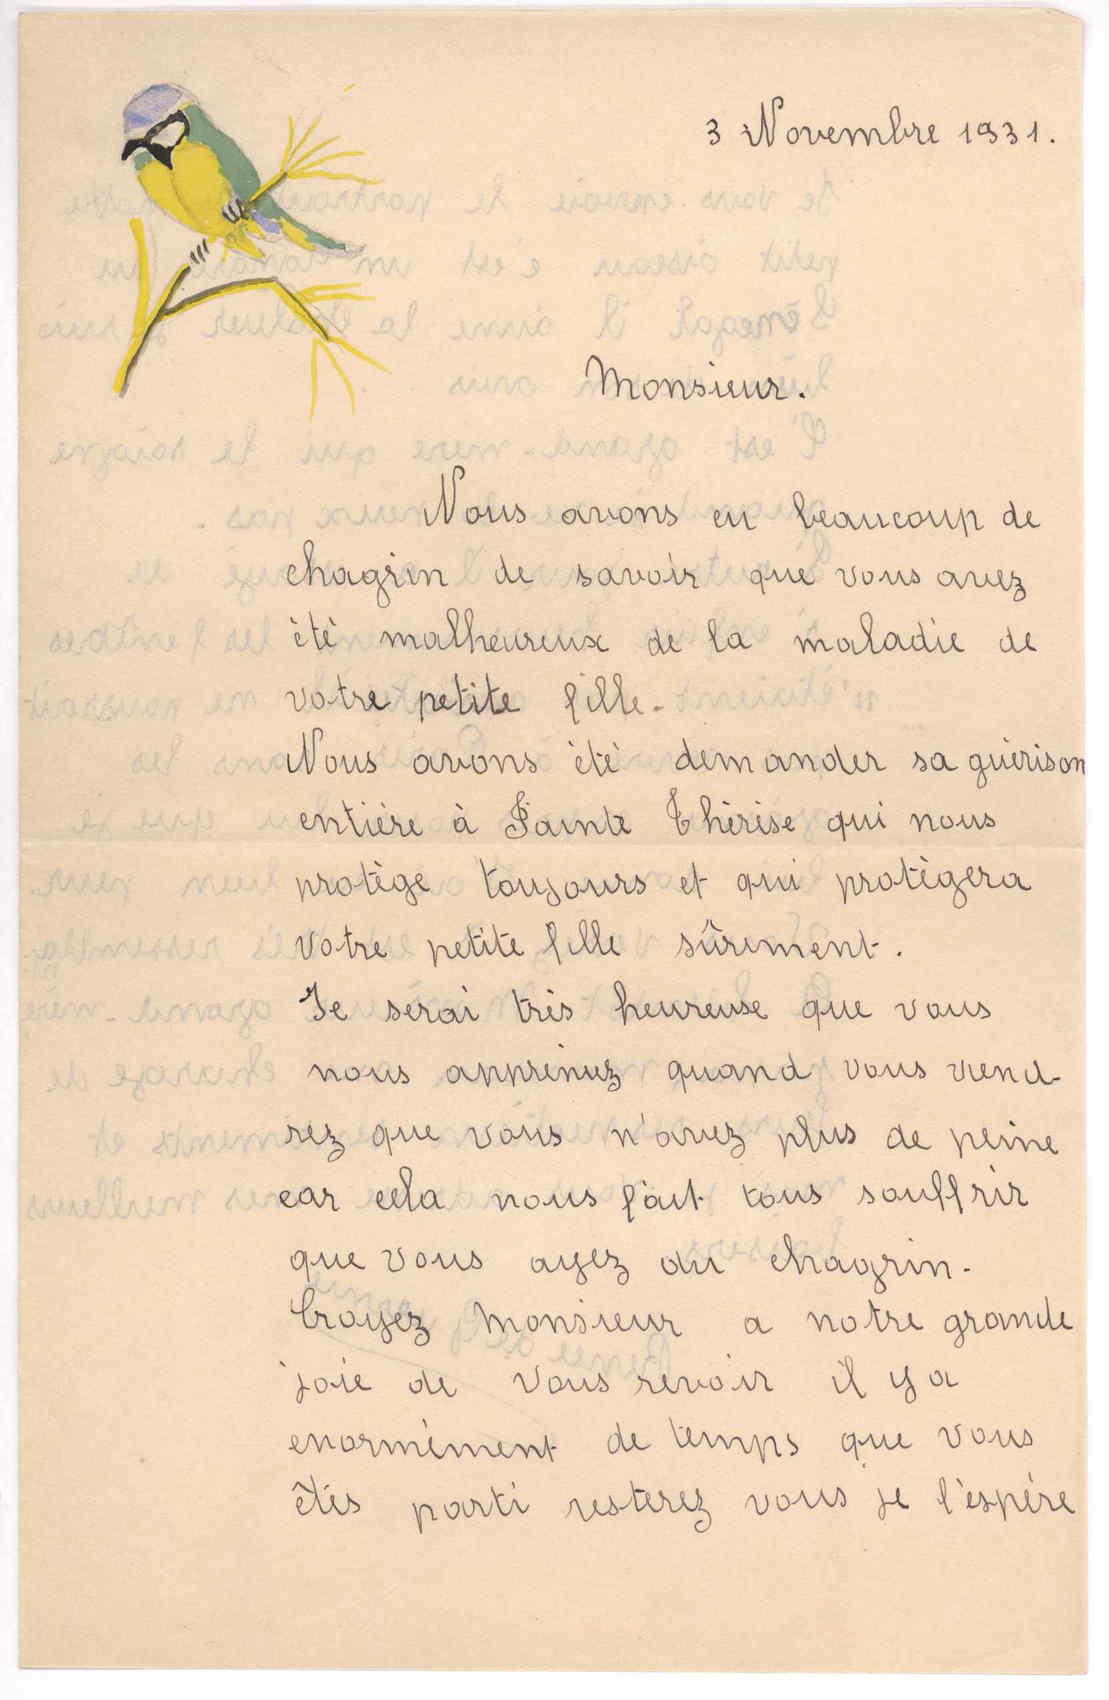 3 Novembre 1931.
Monsieur.
Nous avons eu beaucoup de
chagrin de savoir que vous avez
été malheureux de la maladie de
votre petite fille.
Nous avons été demander sa guérison
entière à Sainte Thérèse qui nous
protège toujours et qui protègera
votre petite fille sûrement.
Je serai très heureuse que vous
nous appreniez quand vous viend-
rez que vous n'avez plus de peine
car cela nous fait tous souffrir
que vous ayez du chagrin.
Croyez Monsieur a notre grande
joie de vous revoir il y a
enormément de temps que vous
êtes parti resterez vous je l'espére